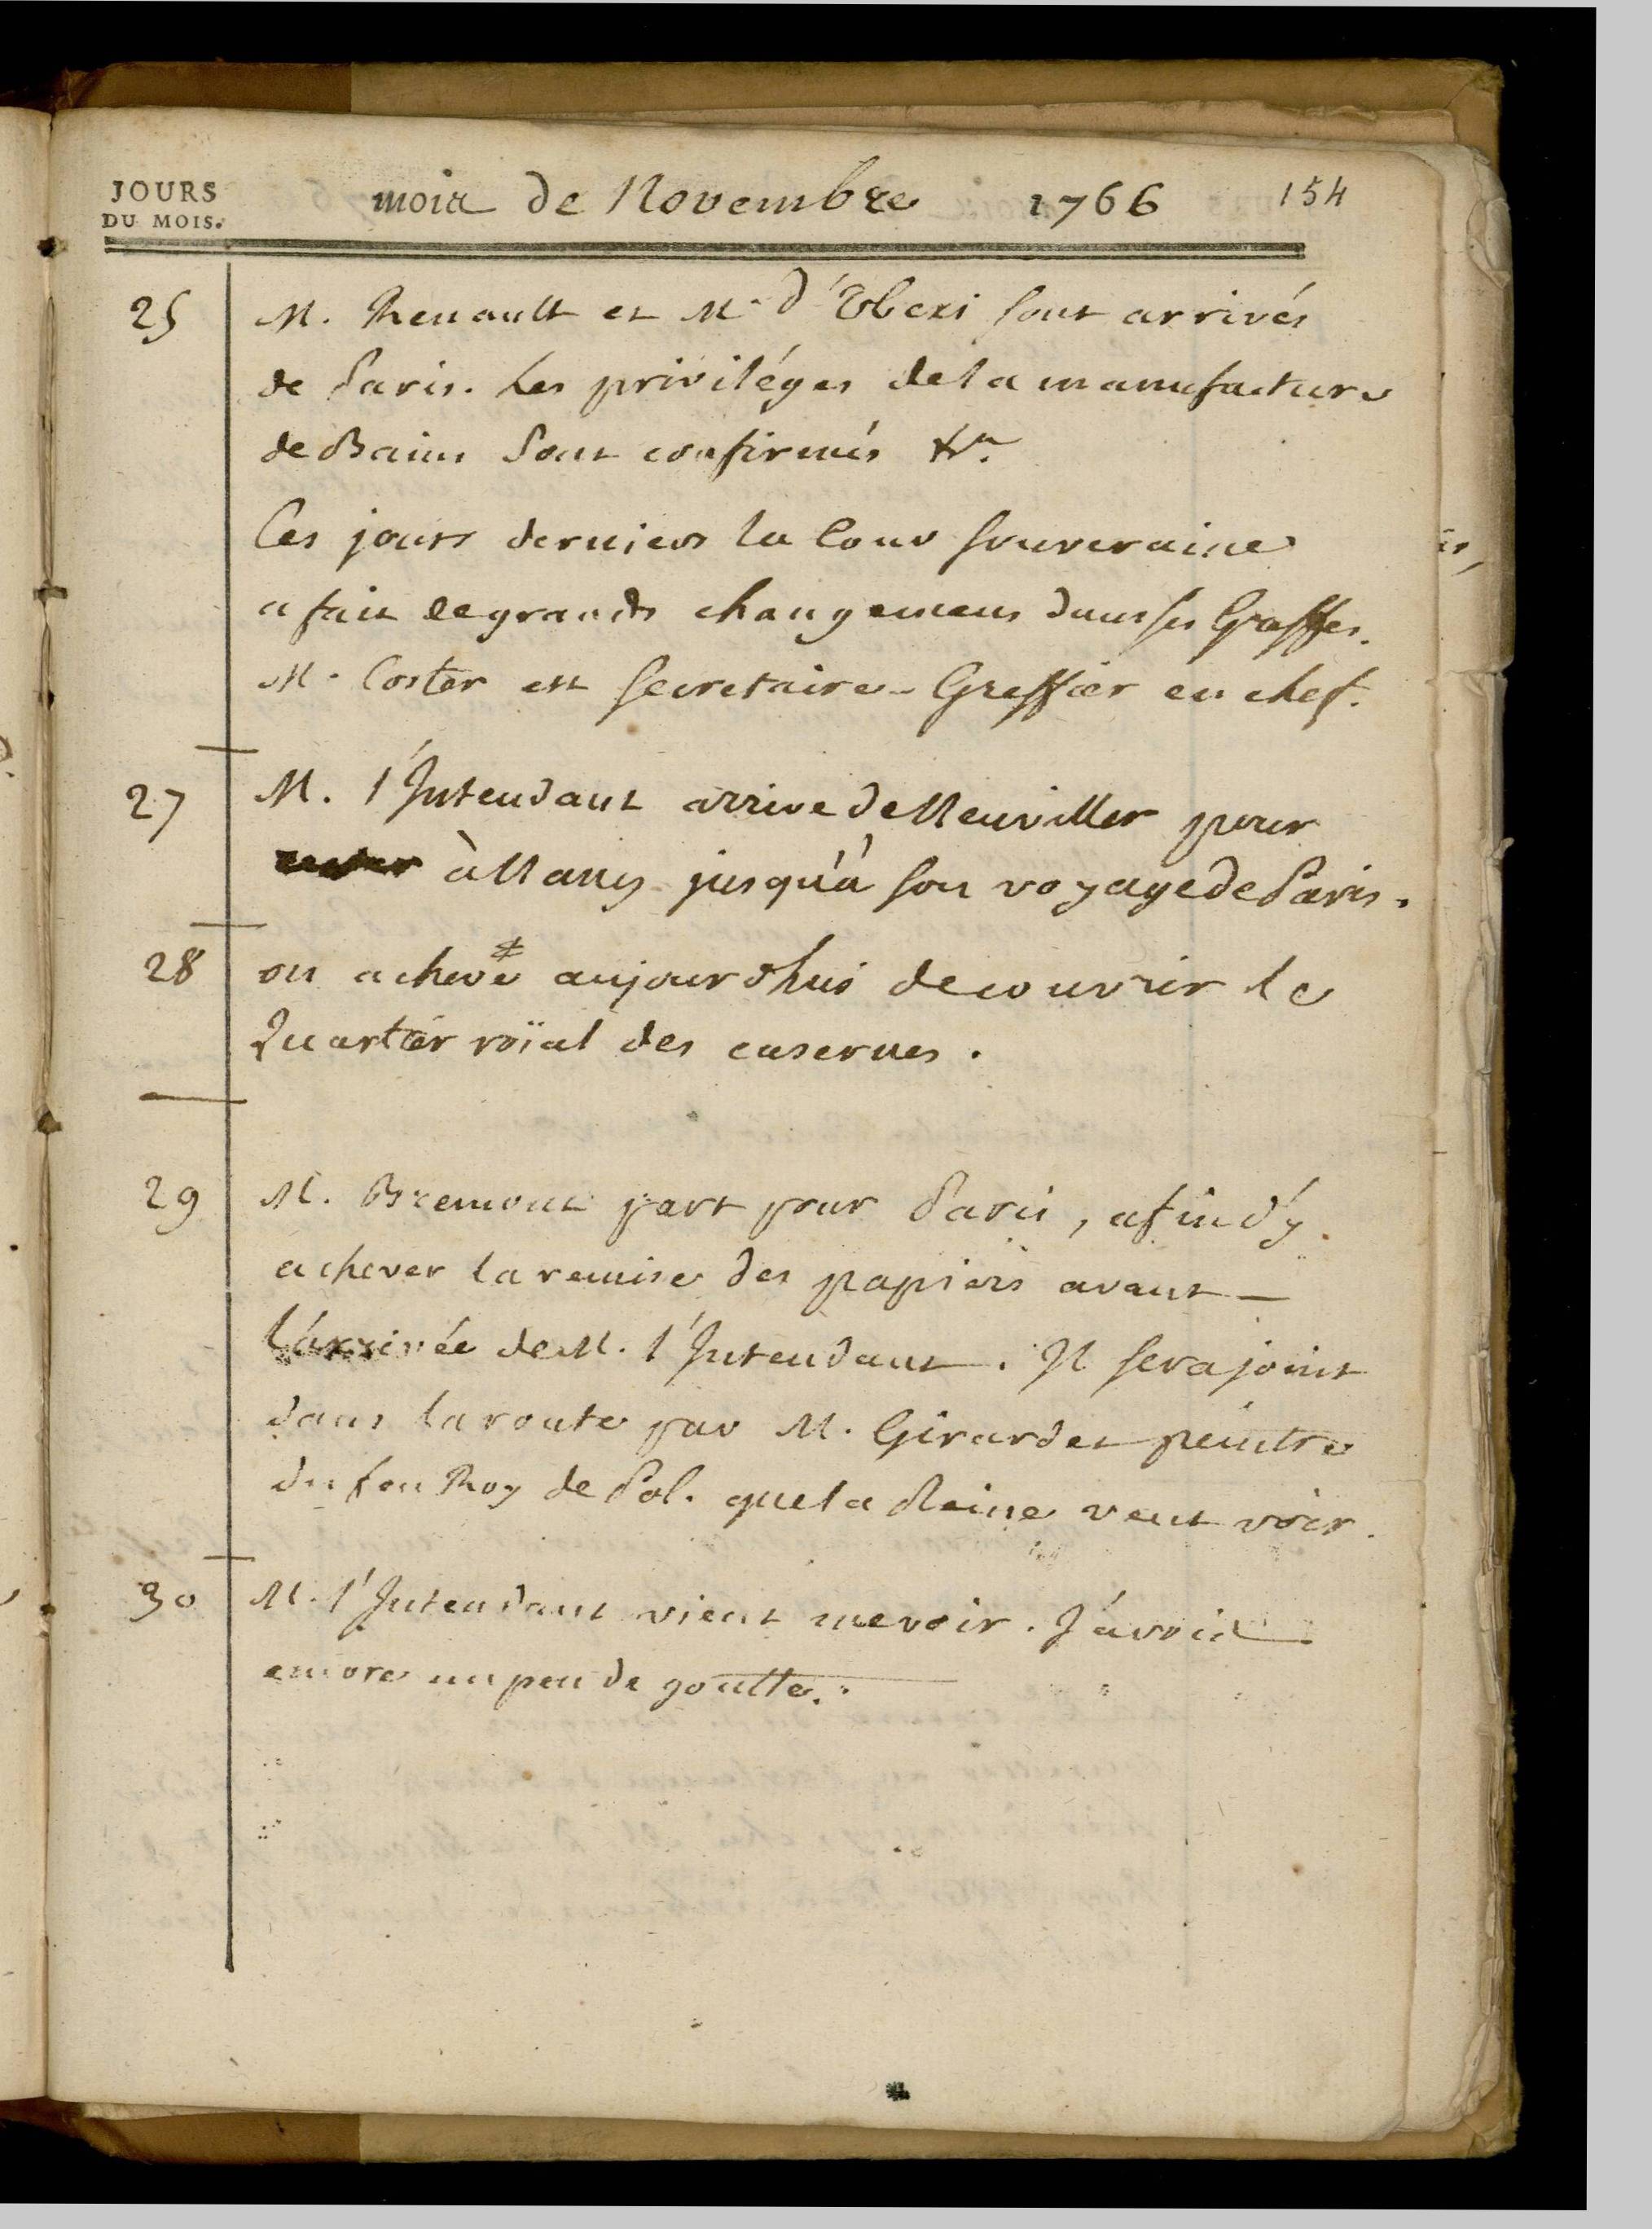 JOURS
DU MOIS.
mois de Novembre 1766 154
25 M. Renault et M. d'Ubexi sont arrivés
de Paris. Les priviléges de la manufacture
de Bains sont confirmés &c.
Ces jours derniers la Cour souveraine
a fait de grands changemens dans ses Greffes.
M. Coster est secretaire-Greffier en chef.
27 M. l'Intendant arrive de Neuviller pour
à Nancy jusqu'à son voyage de Paris.
28 on acheve aujourdhui de couvrir le
Quartier roïal des casernes.
29 M. Bremont part pour Paris, afin d'y
achever la remise des papiers avant
l'arrivée de M. l'Intendant. Il sera joint
dans la route par M. Girardet peintre
du feu Roy de Pol. que la Reine veut voir.
30 M. l'Intendant vient me voir. J'avois
encore un peu de goutte.